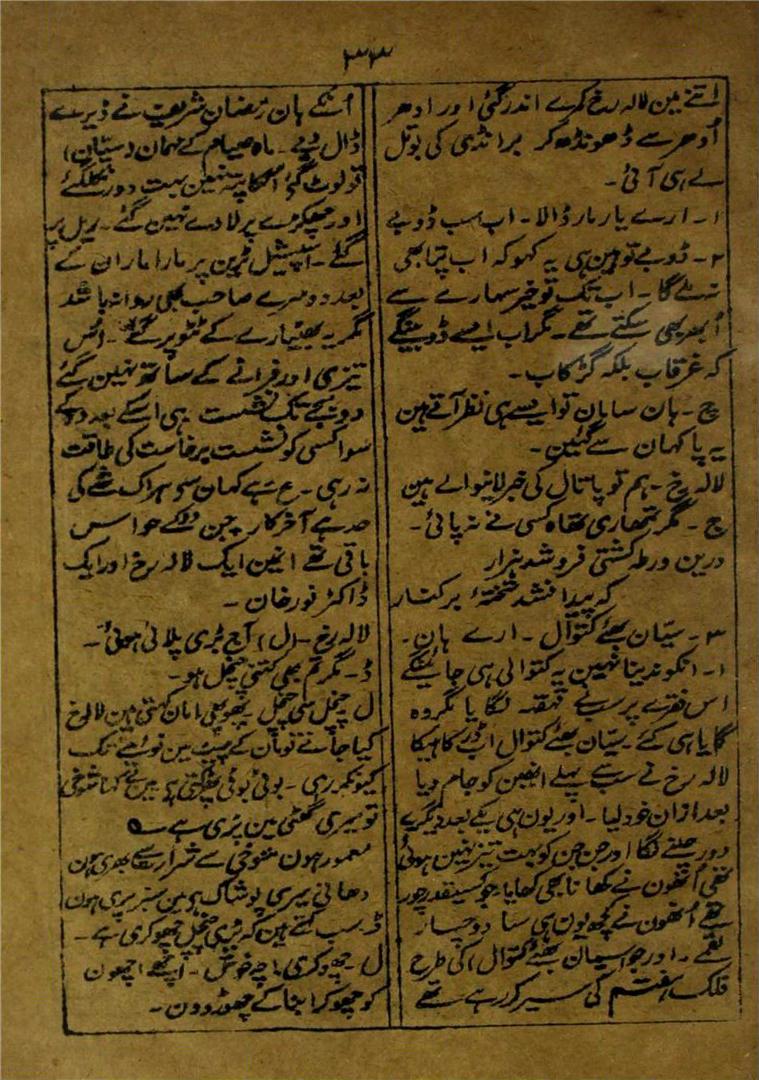 ۳۳
اتنے مین لالہ رخ کمرے اندر گئی اور ادھر
اُدھر سے ڈھونڈھ کر برانڈی کی بوتل
لے ہی آئی۔
۱۔ ارے یار مار ڈالا۔ اب سب ڈوبے
۲۔ ڈوبے تو ہین ہی یہ کہو کہ اب پتا بھی
نہ لگے گا۔ اب تک تو خیر سہارے سے
اُبھر بھی سکتے تھے۔ مگر اب ایسے ڈوبینگے
کہ غرقاب بلکہ گڑکاب۔
چ۔ ہان سامان تو ایسے ہی نظر آتے ہین
یہ پا کہان سے گئین۔
لالہ رخ۔ ہم تو پاتال کی خبر لانیوالے ہین
چ۔ مگر تمھاری تھاہ کسی نے نہ پائی۔
درین ورطہ کشتی فروشد ہزار
کہ پیدا نشد تختۂ بر کنار
۳۔ سیّان بھئے کتوال۔ ارے ہان۔
۱۔ انکو ندینا نہین یہ کتوالی ہی جائینگے
اس فقرے پر سب نے قہقہہ لگایا مگر وہ
گایا ہی کئے۔ سیّان بھئے کتوال اب ڈر کاہیکا
لالہ رخ نے سب سے پہلے انھین کو جام دیا
بعد ازان خود لیا۔ اور یون ہی یکے بعد دیگرے
دور چلنے لگا اور جن جن کو بہت تیز نہین ہوئی
تھی اُنھون نے کھانا بھی کھایا۔ جو کسیقدر چور
تھے اُنھون نے کچھ یون ہی سا دو چار
لقمے۔ اور جو (سیان بھئے کتوال) کی طرح
فلک ہفتم کی سیر کر رہے تھے
اُنکے ہان رمضان شریف نے ڈیرے
ڈال دیے۔ ماہ صیام کے مہمان (سیّان)
تو لوٹ گئے اُنکا پتہ نہین بہت دور نکل گئے
اور چھکڑے پر لادے نہین گئے۔ ریل پر
گئے۔ اسپیشل ٹرین پر مارا ماران کے
بعد دوسرے صاحب بھی روانہ باشد
مگر یہ بھٹیارے کے ٹٹو پر گئے۔ اُس
تیزی اور فراٹے کے ساتھ نہین گئے
دو بجے تک نشست رہی اسکے بعد دو کے
سوا کسی کو نشست برخاست کی طاقت
نہ رہی۔ ع سے کہان سے ہر اک شے کی
حد ہے آخر کار۔ جن دو کے حواس
باقی تھے انمین ایک لالہ رخ اور ایک
ڈاکٹر نور خان۔
لالہ رخ۔ (ل) آج بڑی پلائی ہوئی۔
ڈ۔ مگر تم بھی کتنی چنچل ہو۔
ل چنچل سی چنچل پھوپھی امان کہتی ہین لالہ رخ
کیا جانے تو مان کے پیٹ مین نو مہینے تک
کیونکر رہی۔ بوٹی بوٹی پھڑکتی ہے مین نے کہا شوخی
تو میری گھٹی مین پڑی ہے ؎
معمور ہون شوخی سے شرارت سے بھری ہون
دھانی مری پوشاک ہے مین سبز پری ہون
ڈ۔ سب کہتے ہین کہ بڑی چنچل چھوکری ہے۔
ل۔ چھوکری۔ اچھے خوش۔ اچھے اچھون
کو چھوکرا بنا کے چھوڑ دون۔